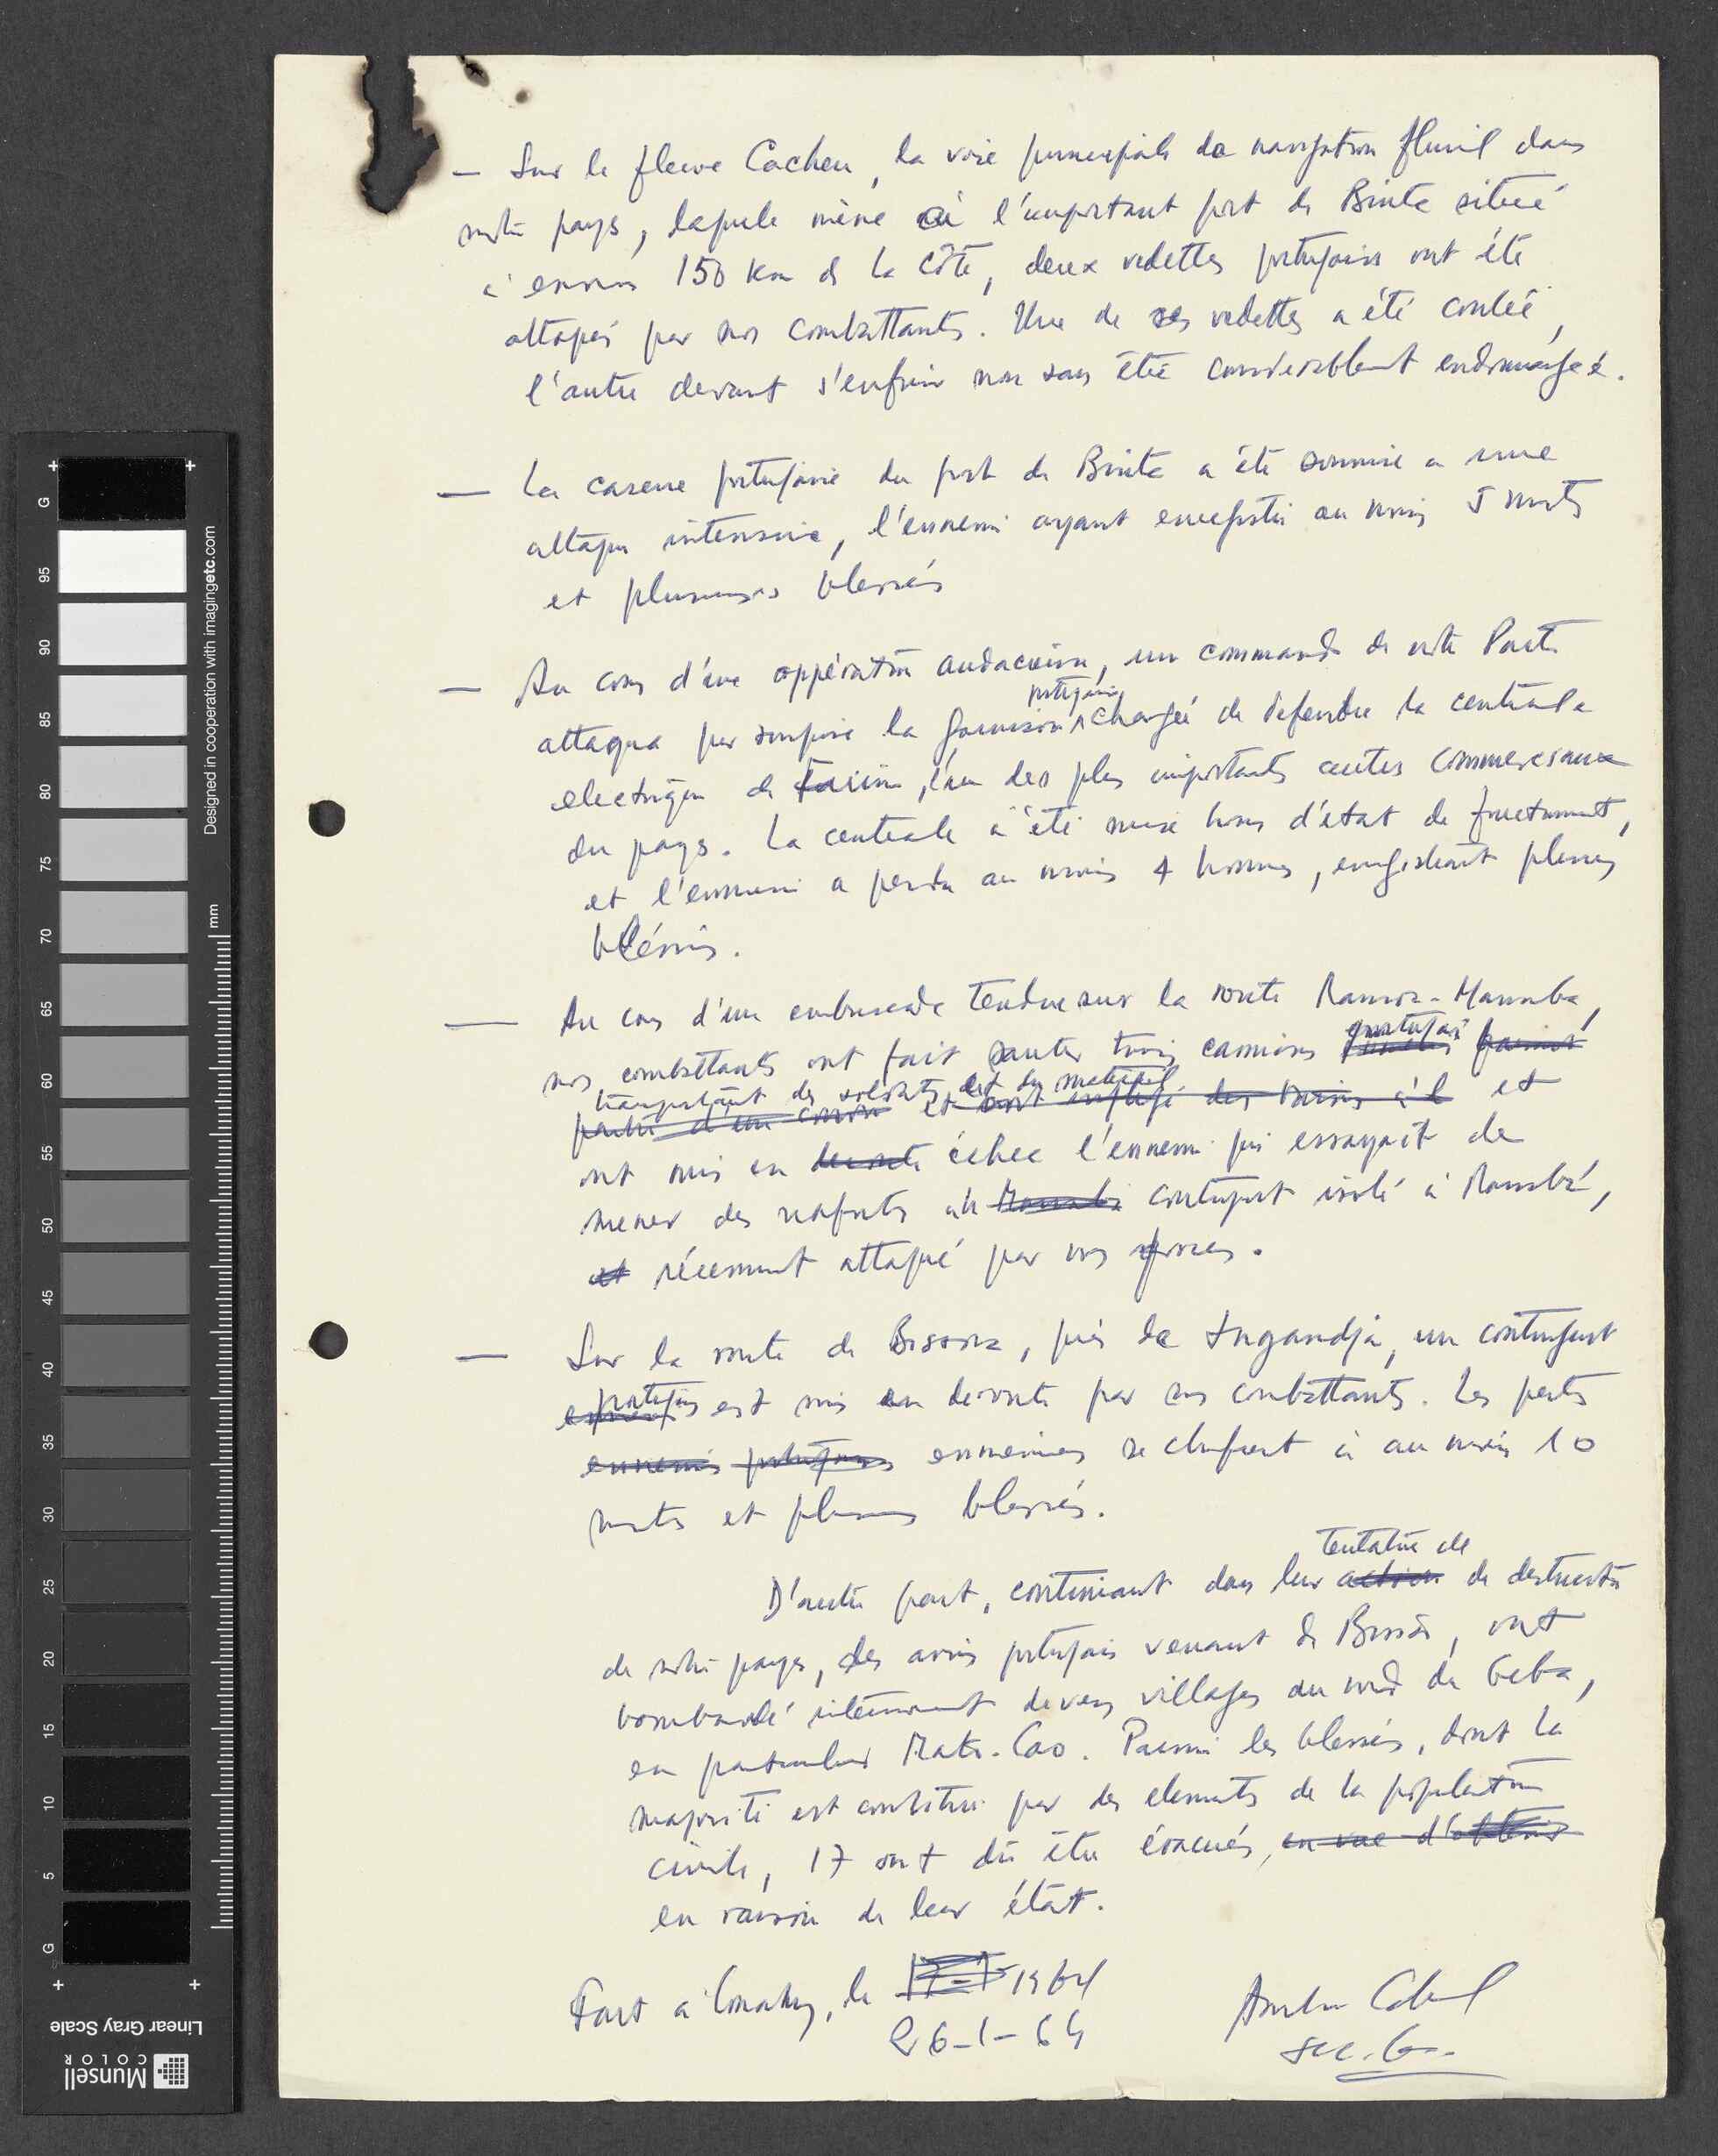 — Sur le fleuve Cacheu, la voie principale de navigation fluvial dans
notre pays, laquele mène à l'important port de Binta situé
à environ 150 km de la côte, deux vedettes portugaises ont été
attaqués par nos combattants. Une de ces vedettes a été coulée,
l'autre devant s'enfuir non sans être considerablement endomagée.
— La caserne portugaise du port de Binta a été soumise a une
attaque intensive, l'ennemi ayant enregistré au moins 5 morts
et plusieurs blessés
— Au cours d'une oppération audacieuse, un commando de notre Parti
attaqua par surprise la garnison portugaise chargée de défendre la centrale
electrique de Farim, l'un des plus importants centres commerciaux
du pays. La centrale a été mise hors d'état de fonctionnement,
et l'ennemi a perdu au moins 4 hommes, enregistrant plusieurs
blessés.
— Au cours d'une embuscade tendue sur la route Mansoa-Mansaba,
nos combattants ont fait sauter trois camions portugais
transportant des soldats et du matériel et
ont mis en échec l'ennemi qui essayait de
mener des renforts au contingent isolé à Mansabá,
récemment attaqué par nos forces.
— Sur la route de Bissora, près de Ingandja, un contingent
portugais est mis en deroute par nos combattants. Les pertes
ennemies se chifrent à au moins 10
morts et plusieurs blessés.
D'autre part, continuant dans leur tentative de destruction
de notre pays, des avions portugais venant de Bissão, ont
bombardé intensément divers villages au nord du Geba,
en particulier Mato-Cao. Parmi les blessés, dont la
majorité est constitué par des elements de la population
civile, 17 ont dû être évacués,
en raison de leur état.
Fait a Conakry, le 1964
26-1-64
Amilcar Cabral
Sec. Gen.
Designed in cooperation with imagingetc.com
mm
G 95 90 85 80 75 70 65 60 55 50 45 40 35 30 25 20 15 10 5 G
Linear Gray Scale
Munsell
COLOR